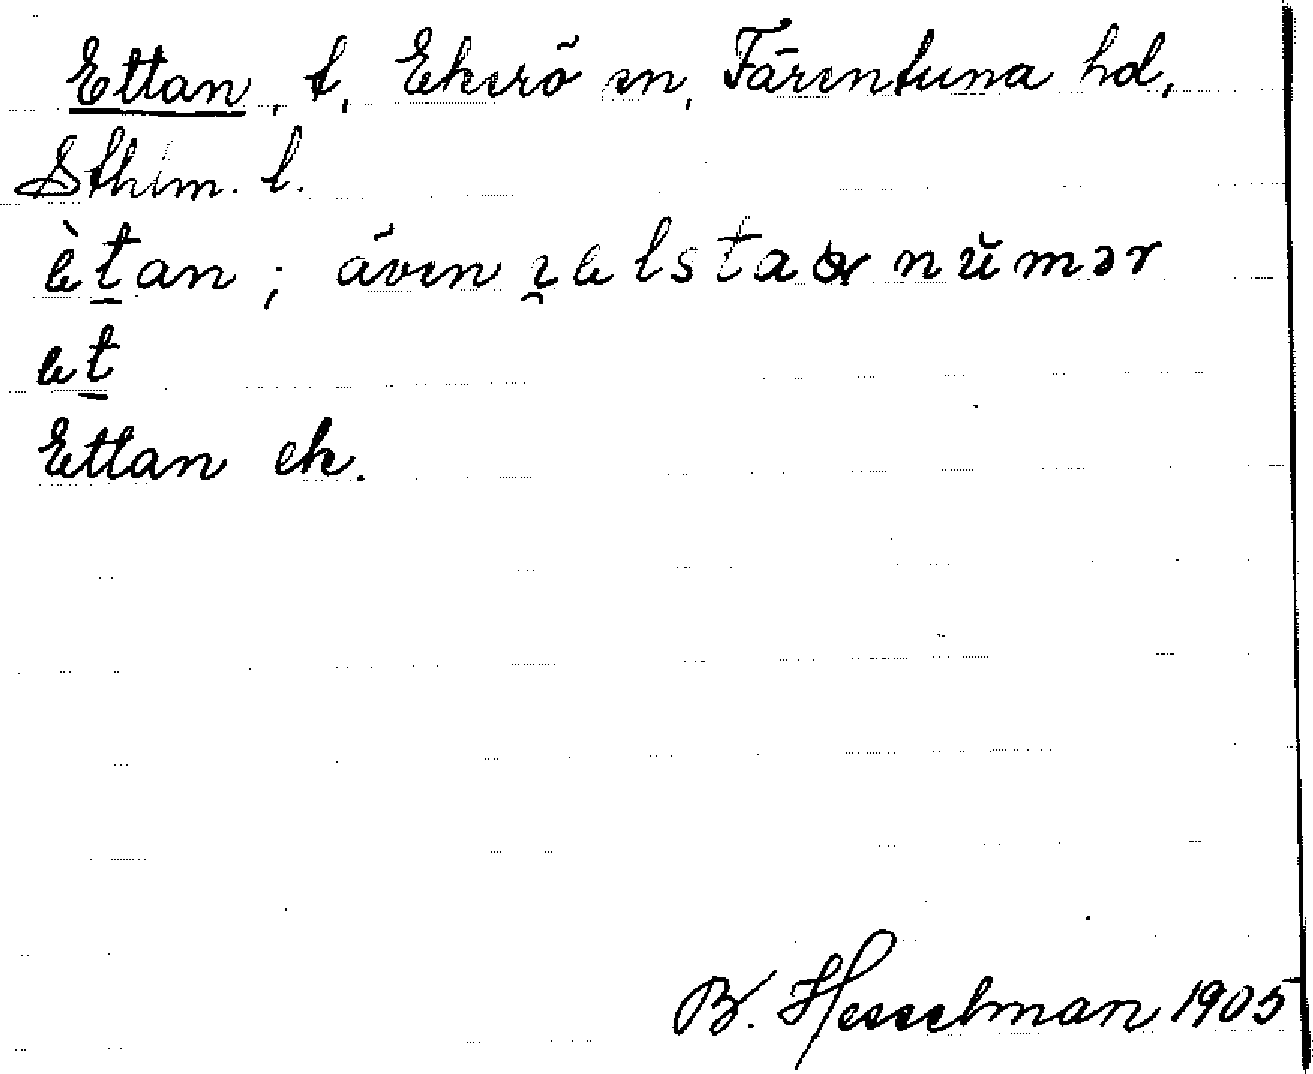 Ettan, t, Ekerö sn, Färentuna hd,
Sthlm. l.
ètan; även numər
et
Ettan ek.
B. Hesselman 1905